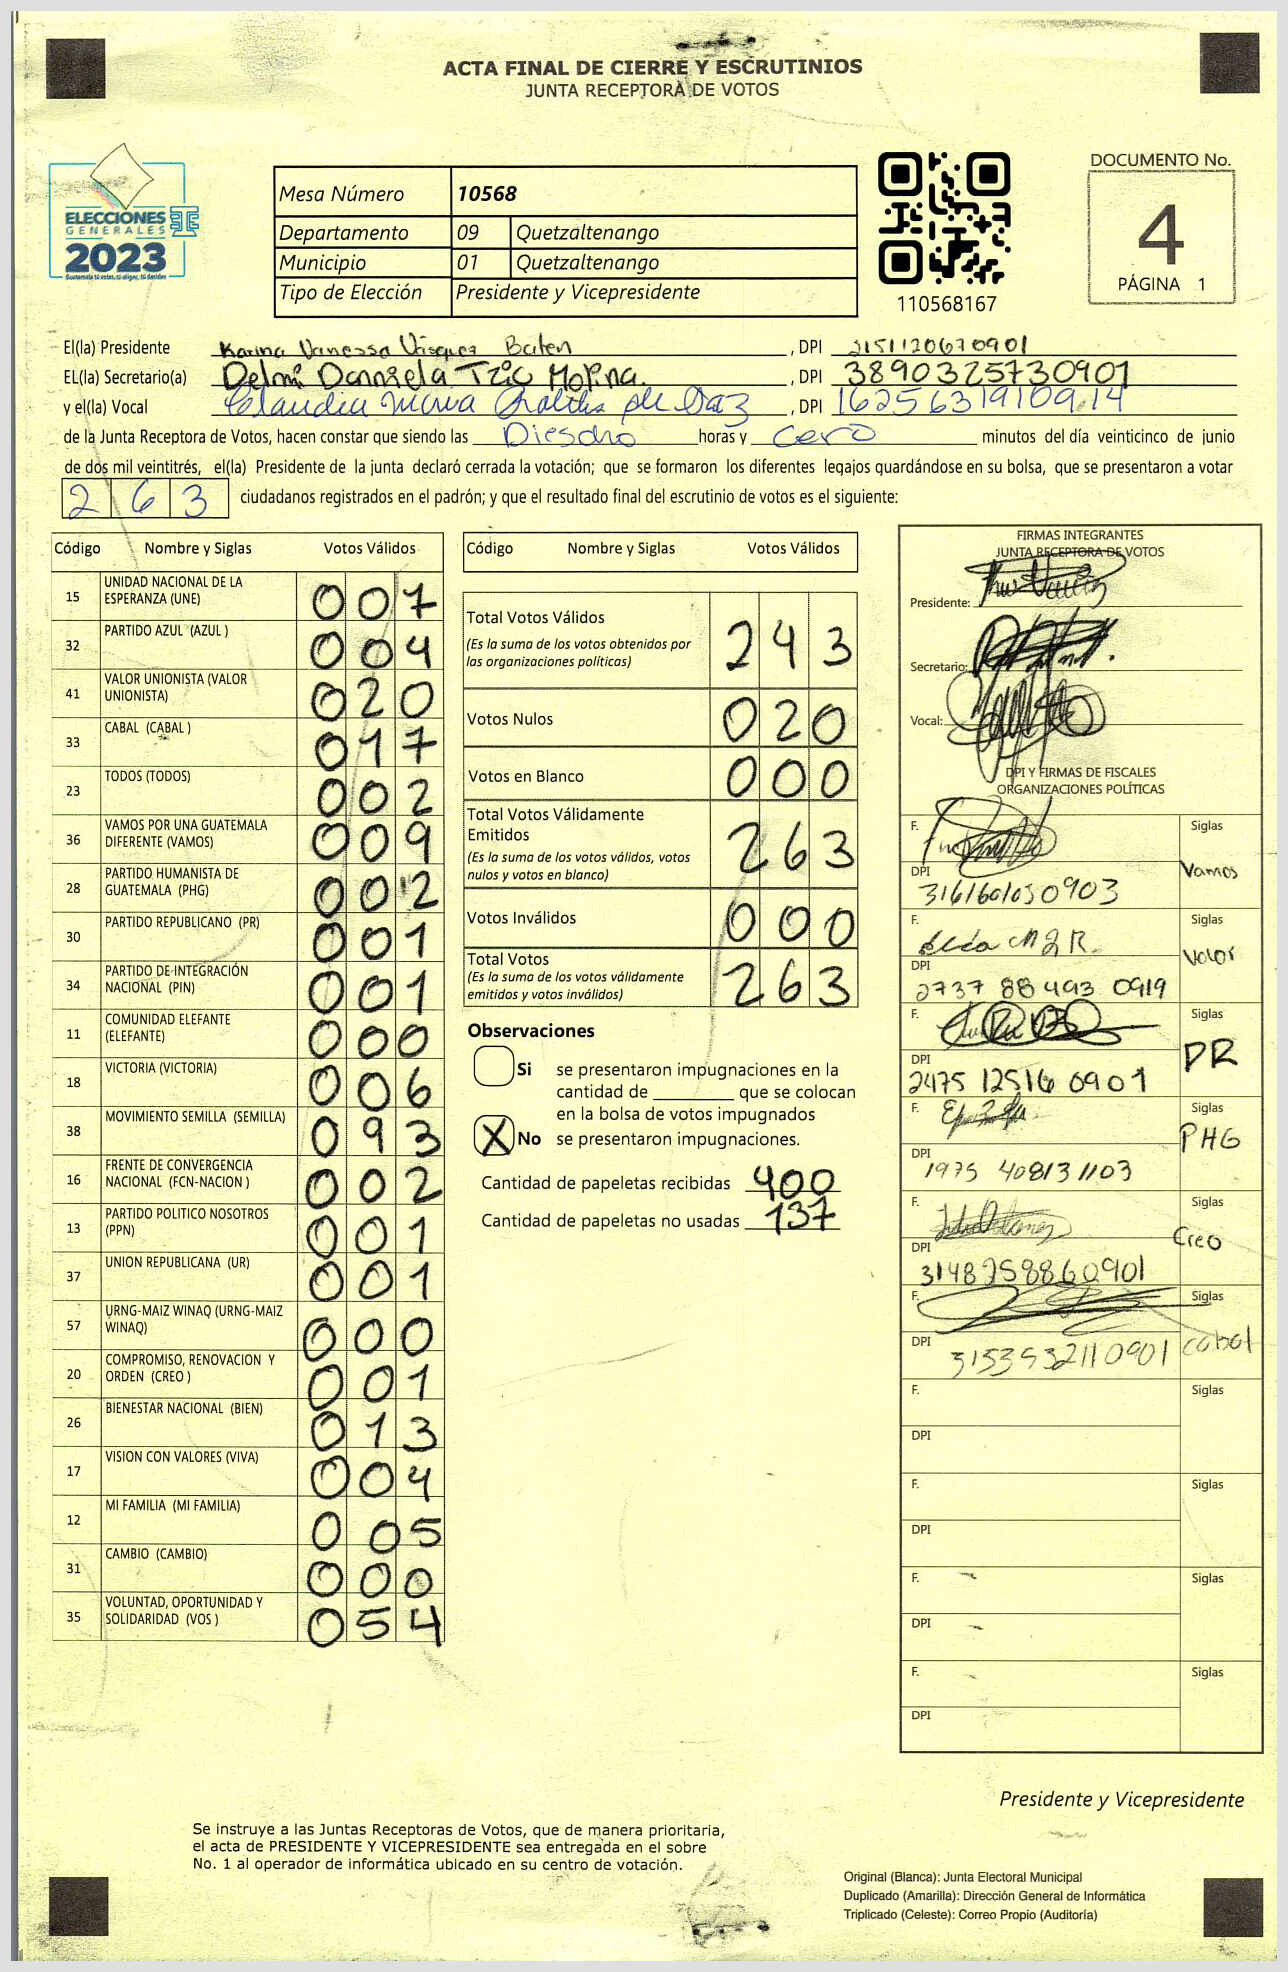 ACTA FINAL DE CIERRE Y ESCRUTINIOS
JUNTA RECEPTORA DE VOTOS
ELECCIONES
GENERALES
2023
Guatemala tú votas, tú eliges, tú decides
Mesa Número 10568
Departamento 09 Quetzaltenango
Municipio 01 Quetzaltenango
Tipo de Elección Presidente y Vicepresidente
110568167
DOCUMENTO No.
4
PÁGINA 1
El(la) Presidente Karina Vanessa Vásquez Baten , DPI 2151120670901
EL(la) Secretario(a) Delmi Danniela Tzic Molina. , DPI 3890325730901
y el(la) Vocal Claudia , DPI 1625631910914
de la Junta Receptora de Votos, hacen constar que siendo las Diesciho horas y cero minutos del día veinticinco de junio
de dos mil veintitrés, el(la) Presidente de la junta declaró cerrada la votación; que se formaron los diferentes legajos quardándose en su bolsa, que se presentaron a votar
263 ciudadanos registrados en el padrón; y que el resultado final del escrutinio de votos es el siguiente:
Código Nombre y Siglas Votos Válidos
15 UNIDAD NACIONAL DE LA ESPERANZA (UNE) 007
32 PARTIDO AZUL (AZUL ) 004
41 VALOR UNIONISTA (VALOR UNIONISTA) 020
33 CABAL (CABAL ) 017
23 TODOS (TODOS) 002
36 VAMOS POR UNA GUATEMALA DIFERENTE (VAMOS) 009
28 PARTIDO HUMANISTA DE GUATEMALA (PHG) 002
30 PARTIDO REPUBLICANO (PR) 001
34 PARTIDO DE INTEGRACIÓN NACIONAL (PIN) 001
11 COMUNIDAD ELEFANTE (ELEFANTE) 000
18 VICTORIA (VICTORIA) 006
38 MOVIMIENTO SEMILLA (SEMILLA) 093
16 FRENTE DE CONVERGENCIA NACIONAL (FCN-NACION ) 002
13 PARTIDO POLITICO NOSOTROS (PPN) 001
37 UNION REPUBLICANA (UR) 001
57 URNG-MAIZ WINAQ (URNG-MAIZ WINAQ) 000
20 COMPROMISO, RENOVACION Y ORDEN (CREO ) 001
26 BIENESTAR NACIONAL (BIEN) 013
17 VISION CON VALORES (VIVA) 004
12 MI FAMILIA (MI FAMILIA) 005
31 CAMBIO (CAMBIO) 000
35 VOLUNTAD, OPORTUNIDAD Y SOLIDARIDAD (VOS ) 054
Código Nombre y Siglas Votos Válidos
Total Votos Válidos 243
(Es la suma de los votos obtenidos por
las organizaciones políticas)
Votos Nulos 020
Votos en Blanco 000
Total Votos Válidamente
Emitidos 263
(Es la suma de los votos válidos, votos
nulos y votos en blanco)
Votos Inválidos 000
Total Votos 263
(Es la suma de los votos válidamente
emitidos y votos inválidos)
Observaciones
Si se presentaron impugnaciones en la
cantidad de ________ que se colocan
en la bolsa de votos impugnados
X No se presentaron impugnaciones.
Cantidad de papeletas recibidas 400
Cantidad de papeletas no usadas 137
FIRMAS INTEGRANTES
JUNTA RECEPTORA DE VOTOS
Presidente:
Secretario:
Vocal:
DPI Y FIRMAS DE FISCALES
ORGANIZACIONES POLÍTICAS
F. Siglas
Vamos
DPI 3161601030903
F. Siglas
Valor
DPI 2737 88493 0919
F. Siglas
PR
DPI 2475 12516 0901
F. Siglas
PHG
DPI 1975 408131103
F. Siglas
Creo
DPI 3148258860901
F. Siglas
DPI 3153932110901 cabal
F. Siglas
DPI
F. Siglas
DPI
F. Siglas
DPI
F. Siglas
DPI
Presidente y Vicepresidente
Se instruye a las Juntas Receptoras de Votos, que de manera prioritaria,
el acta de PRESIDENTE Y VICEPRESIDENTE sea entregada en el sobre
No. 1 al operador de informática ubicado en su centro de votación.
Original (Blanca): Junta Electoral Municipal
Duplicado (Amarilla): Dirección General de Informática
Triplicado (Celeste): Correo Propio (Auditoría)